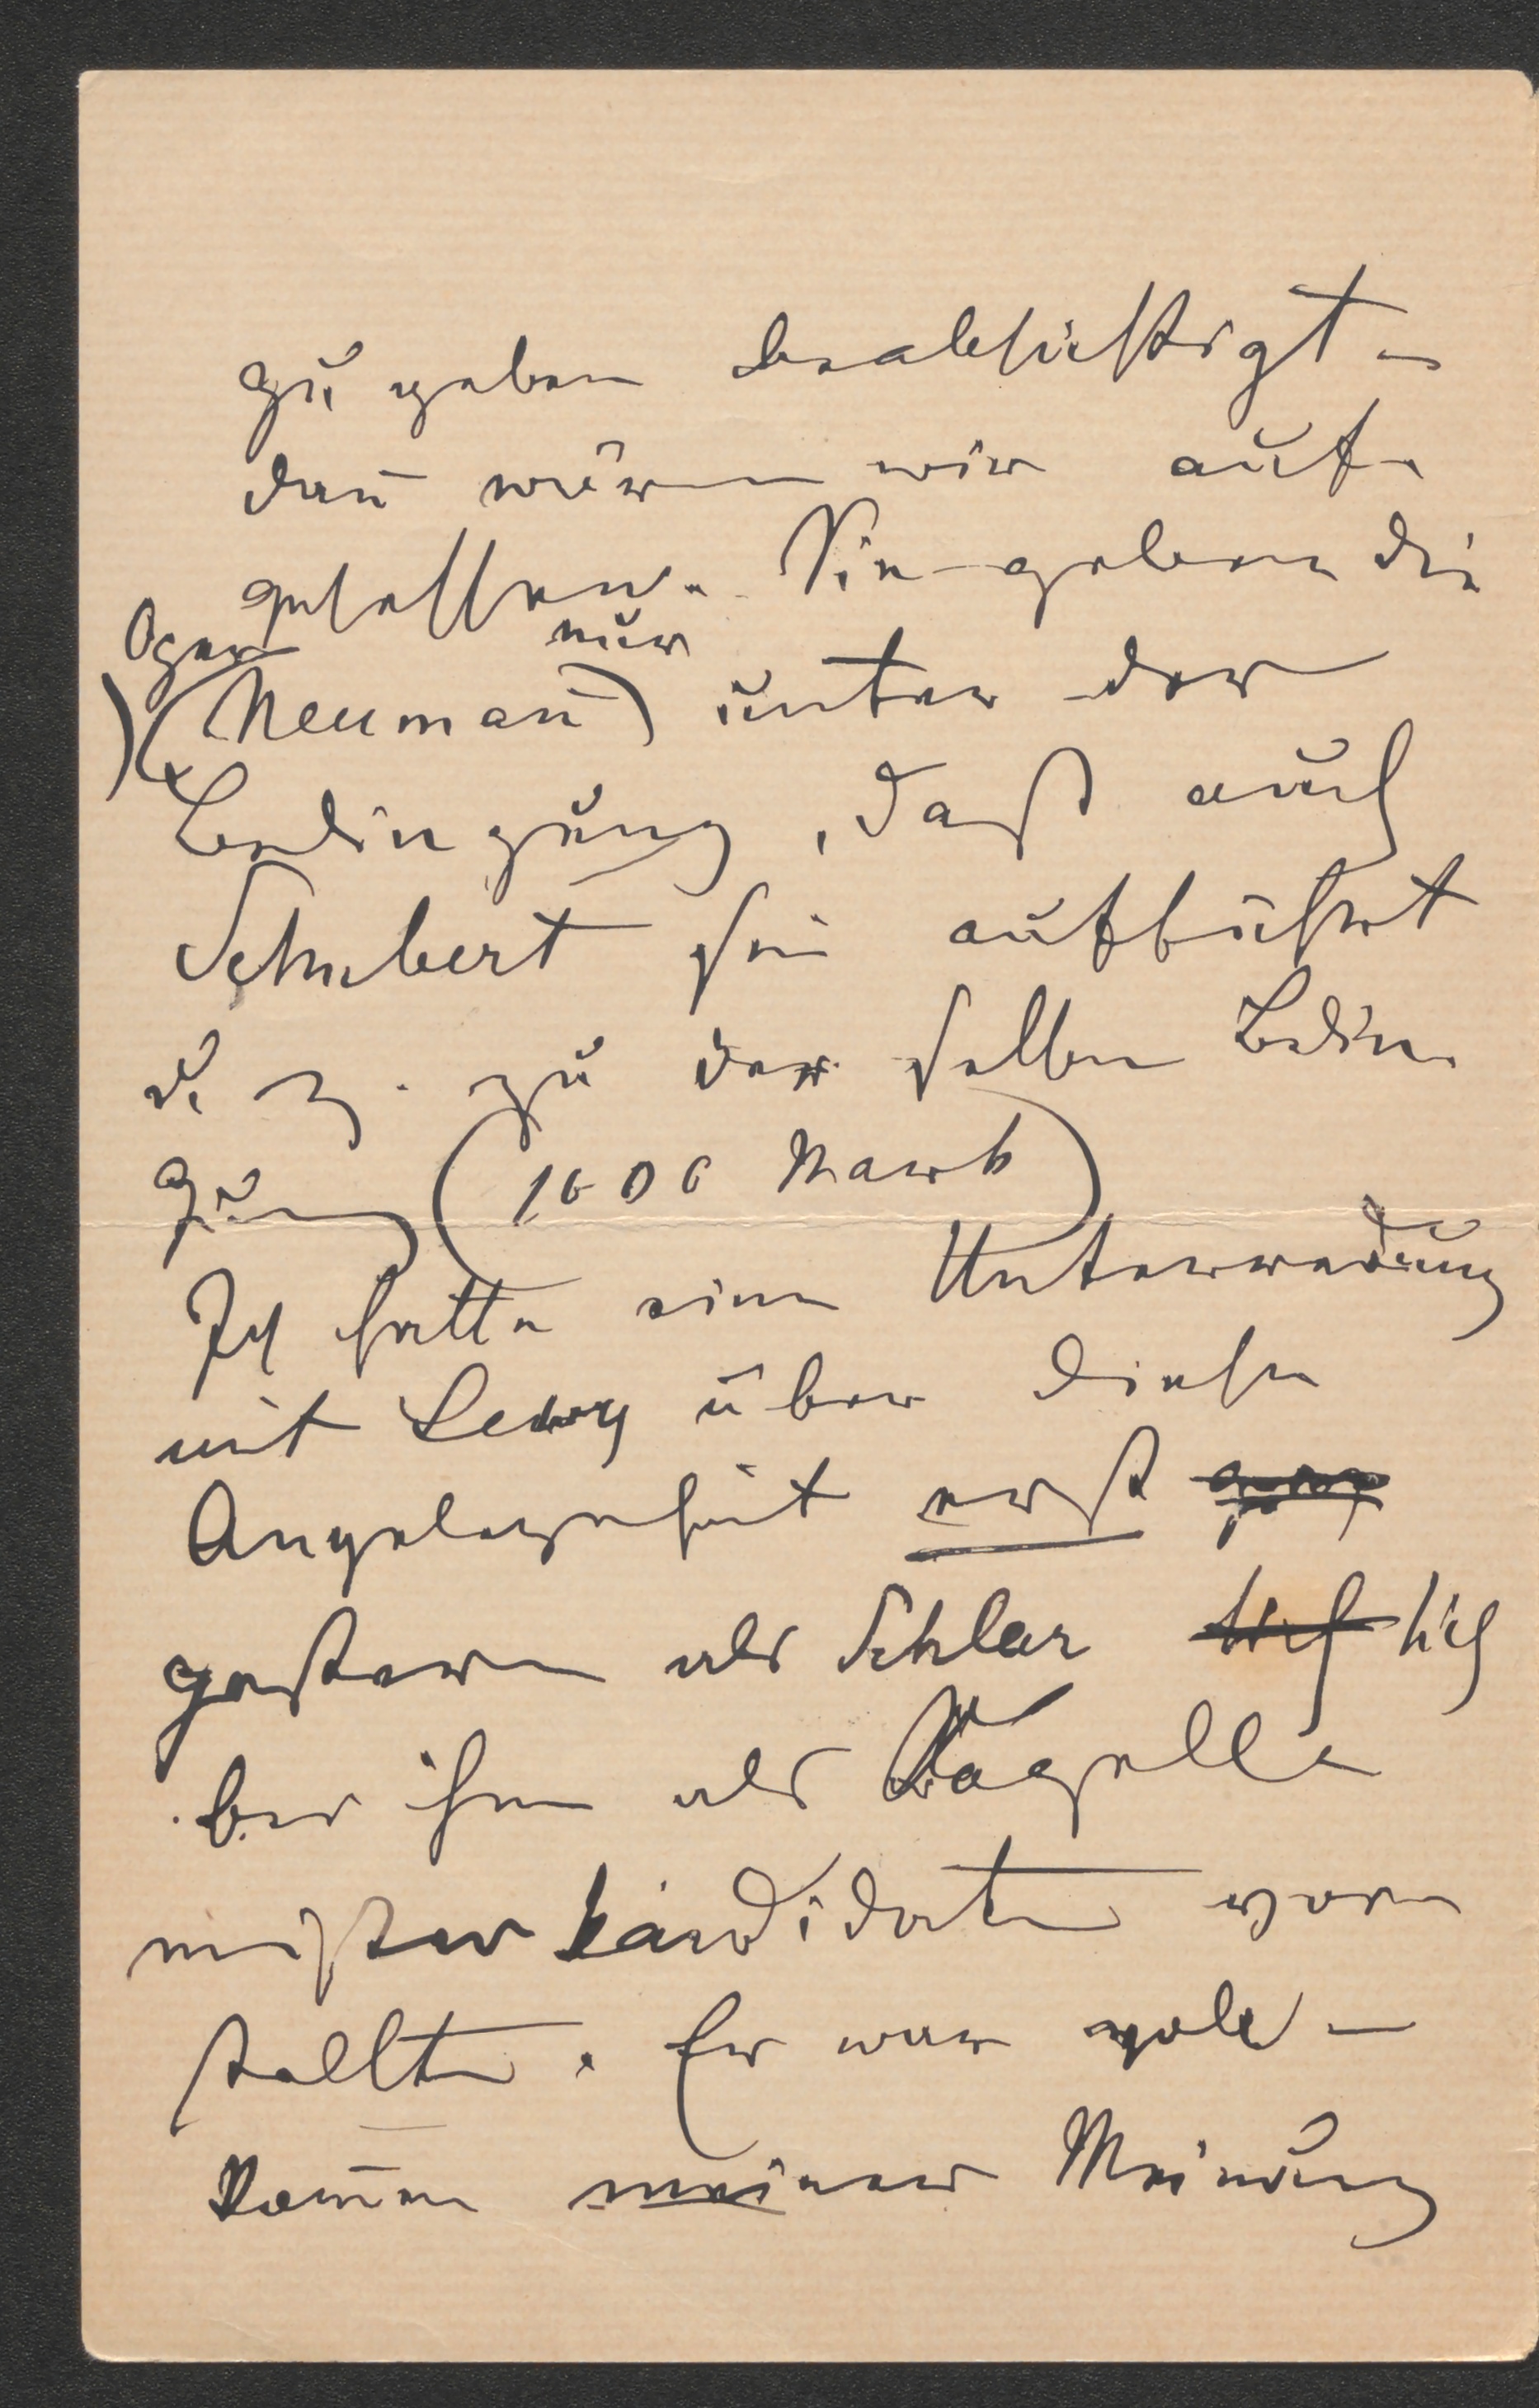 zu geben beabsichtigt –
dann wären wir auf-
gesessen. Sie geben die
Oper nur
(Neumann) unter der
Bedingung, daß auch
Schubert sie aufführt
u. z. zu der selben Bedin
gung (1000 Mark)
Ich hatte eine Unterredung
mit Levy über diese
Angelegenheit erst ganz
gestern als Schlar sich sich
bei ihm als Kapell
meisterkandidaten vor
stellte. Er war voll –
kommen meiner Meinung